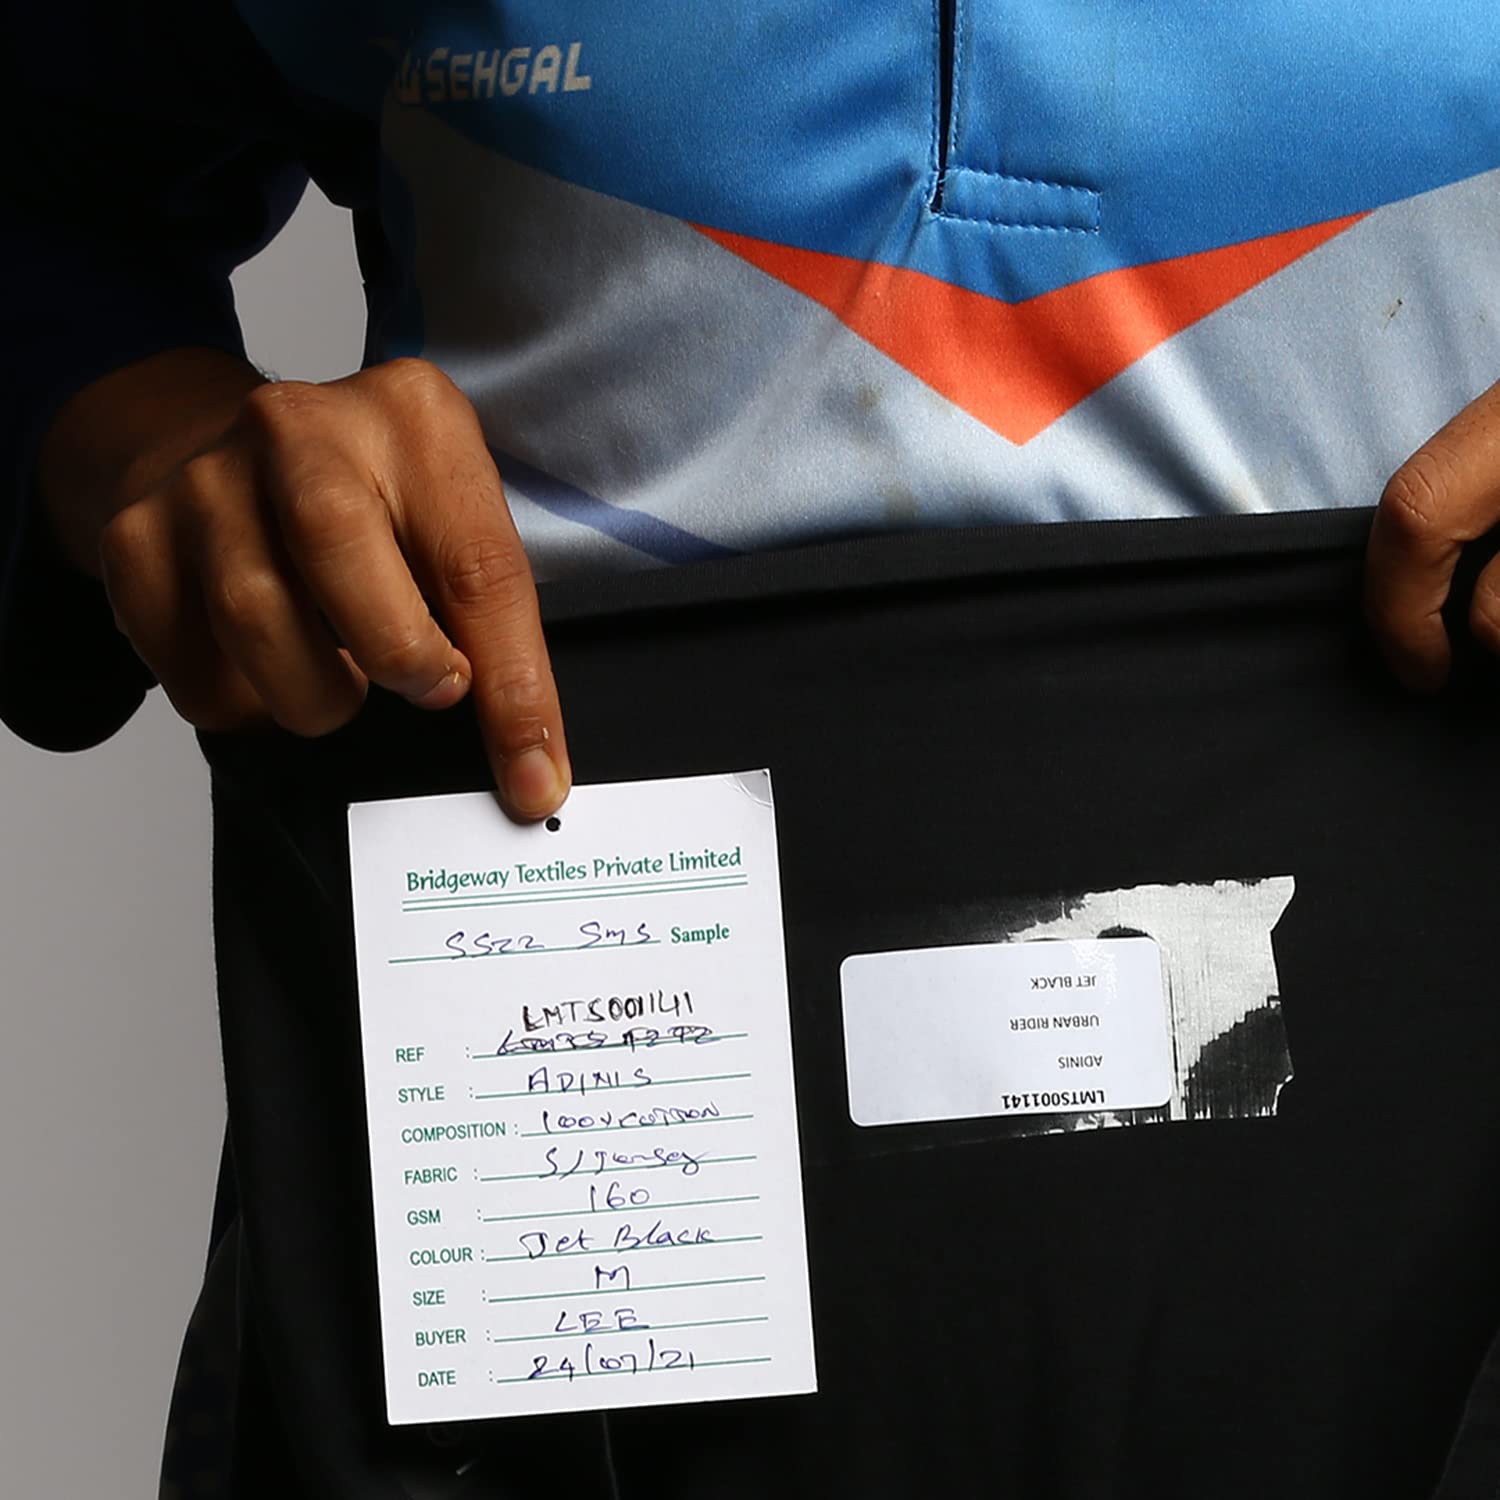 SEHGAL
Bridgeway Textiles Private Limited
SS22 SMS Sample
LMTS001141
REF :
STYLE : ADINIS
COMPOSITION : 100% COTTON
FABRIC : S/Jersey
GSM : 160
COLOUR : Jet Black
SIZE : M
BUYER : LEE
DATE : 24/07/21
LMTS001141
ADINIS
URBAN RIDER
JET BLACK